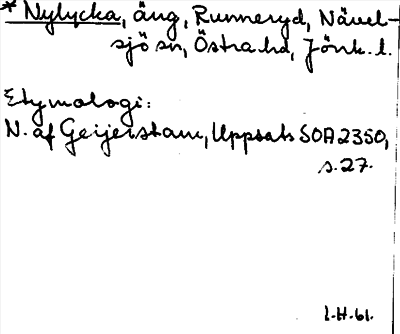 * Nylycka, äng, Runneryd, Nävel-
sjö sn, Östra hd, Jönk. l.
Etymologi:
N. af Geijerstam, Uppsats SOA 2350,
s. 27.
I.H. 61.